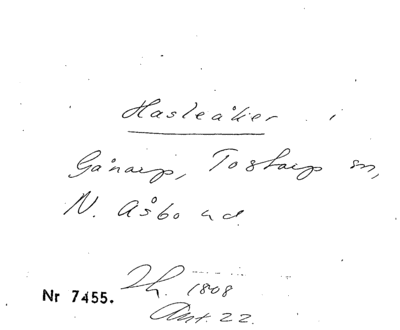 Hasleåker i
Gånarp, Tostarp sn,
N. Åsbo hd.
Th. 1808
Nr 7455.
Ant. 22.